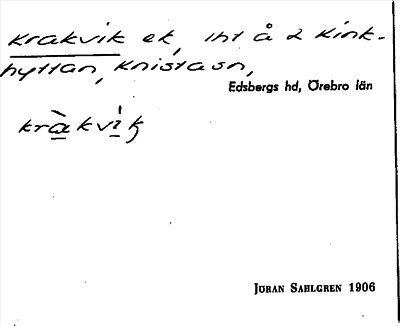 Krakvik ek, int å 2 Kink-
hyttan, Knista sn,
Edsbergs hd, Örebro län
kràkvìk
JÖRAN SAHLGREN 1906